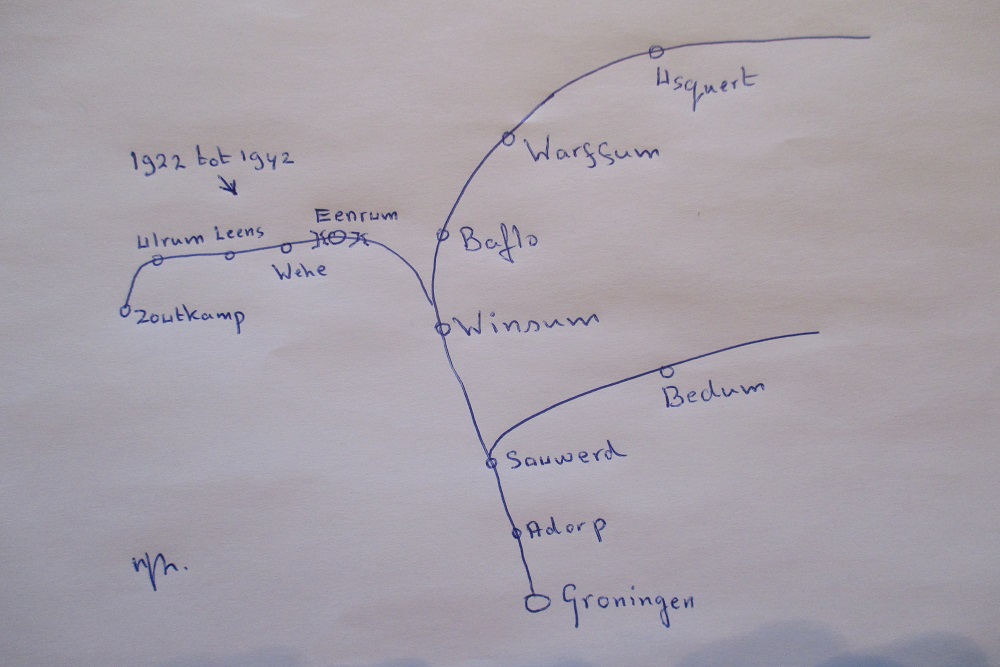 Usquert
Warffum
1922 tot 1942
Eenrum
Ulrum Leens
Baflo
Wehe
Zoutkamp
Winsum
Bedum
Sauwerd
Adorp
Groningen